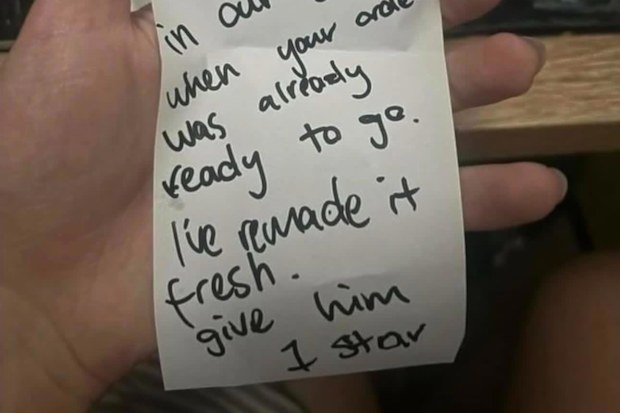 in our
when your orde
was already
ready to go.
I've remade it
fresh.
give him
1 star